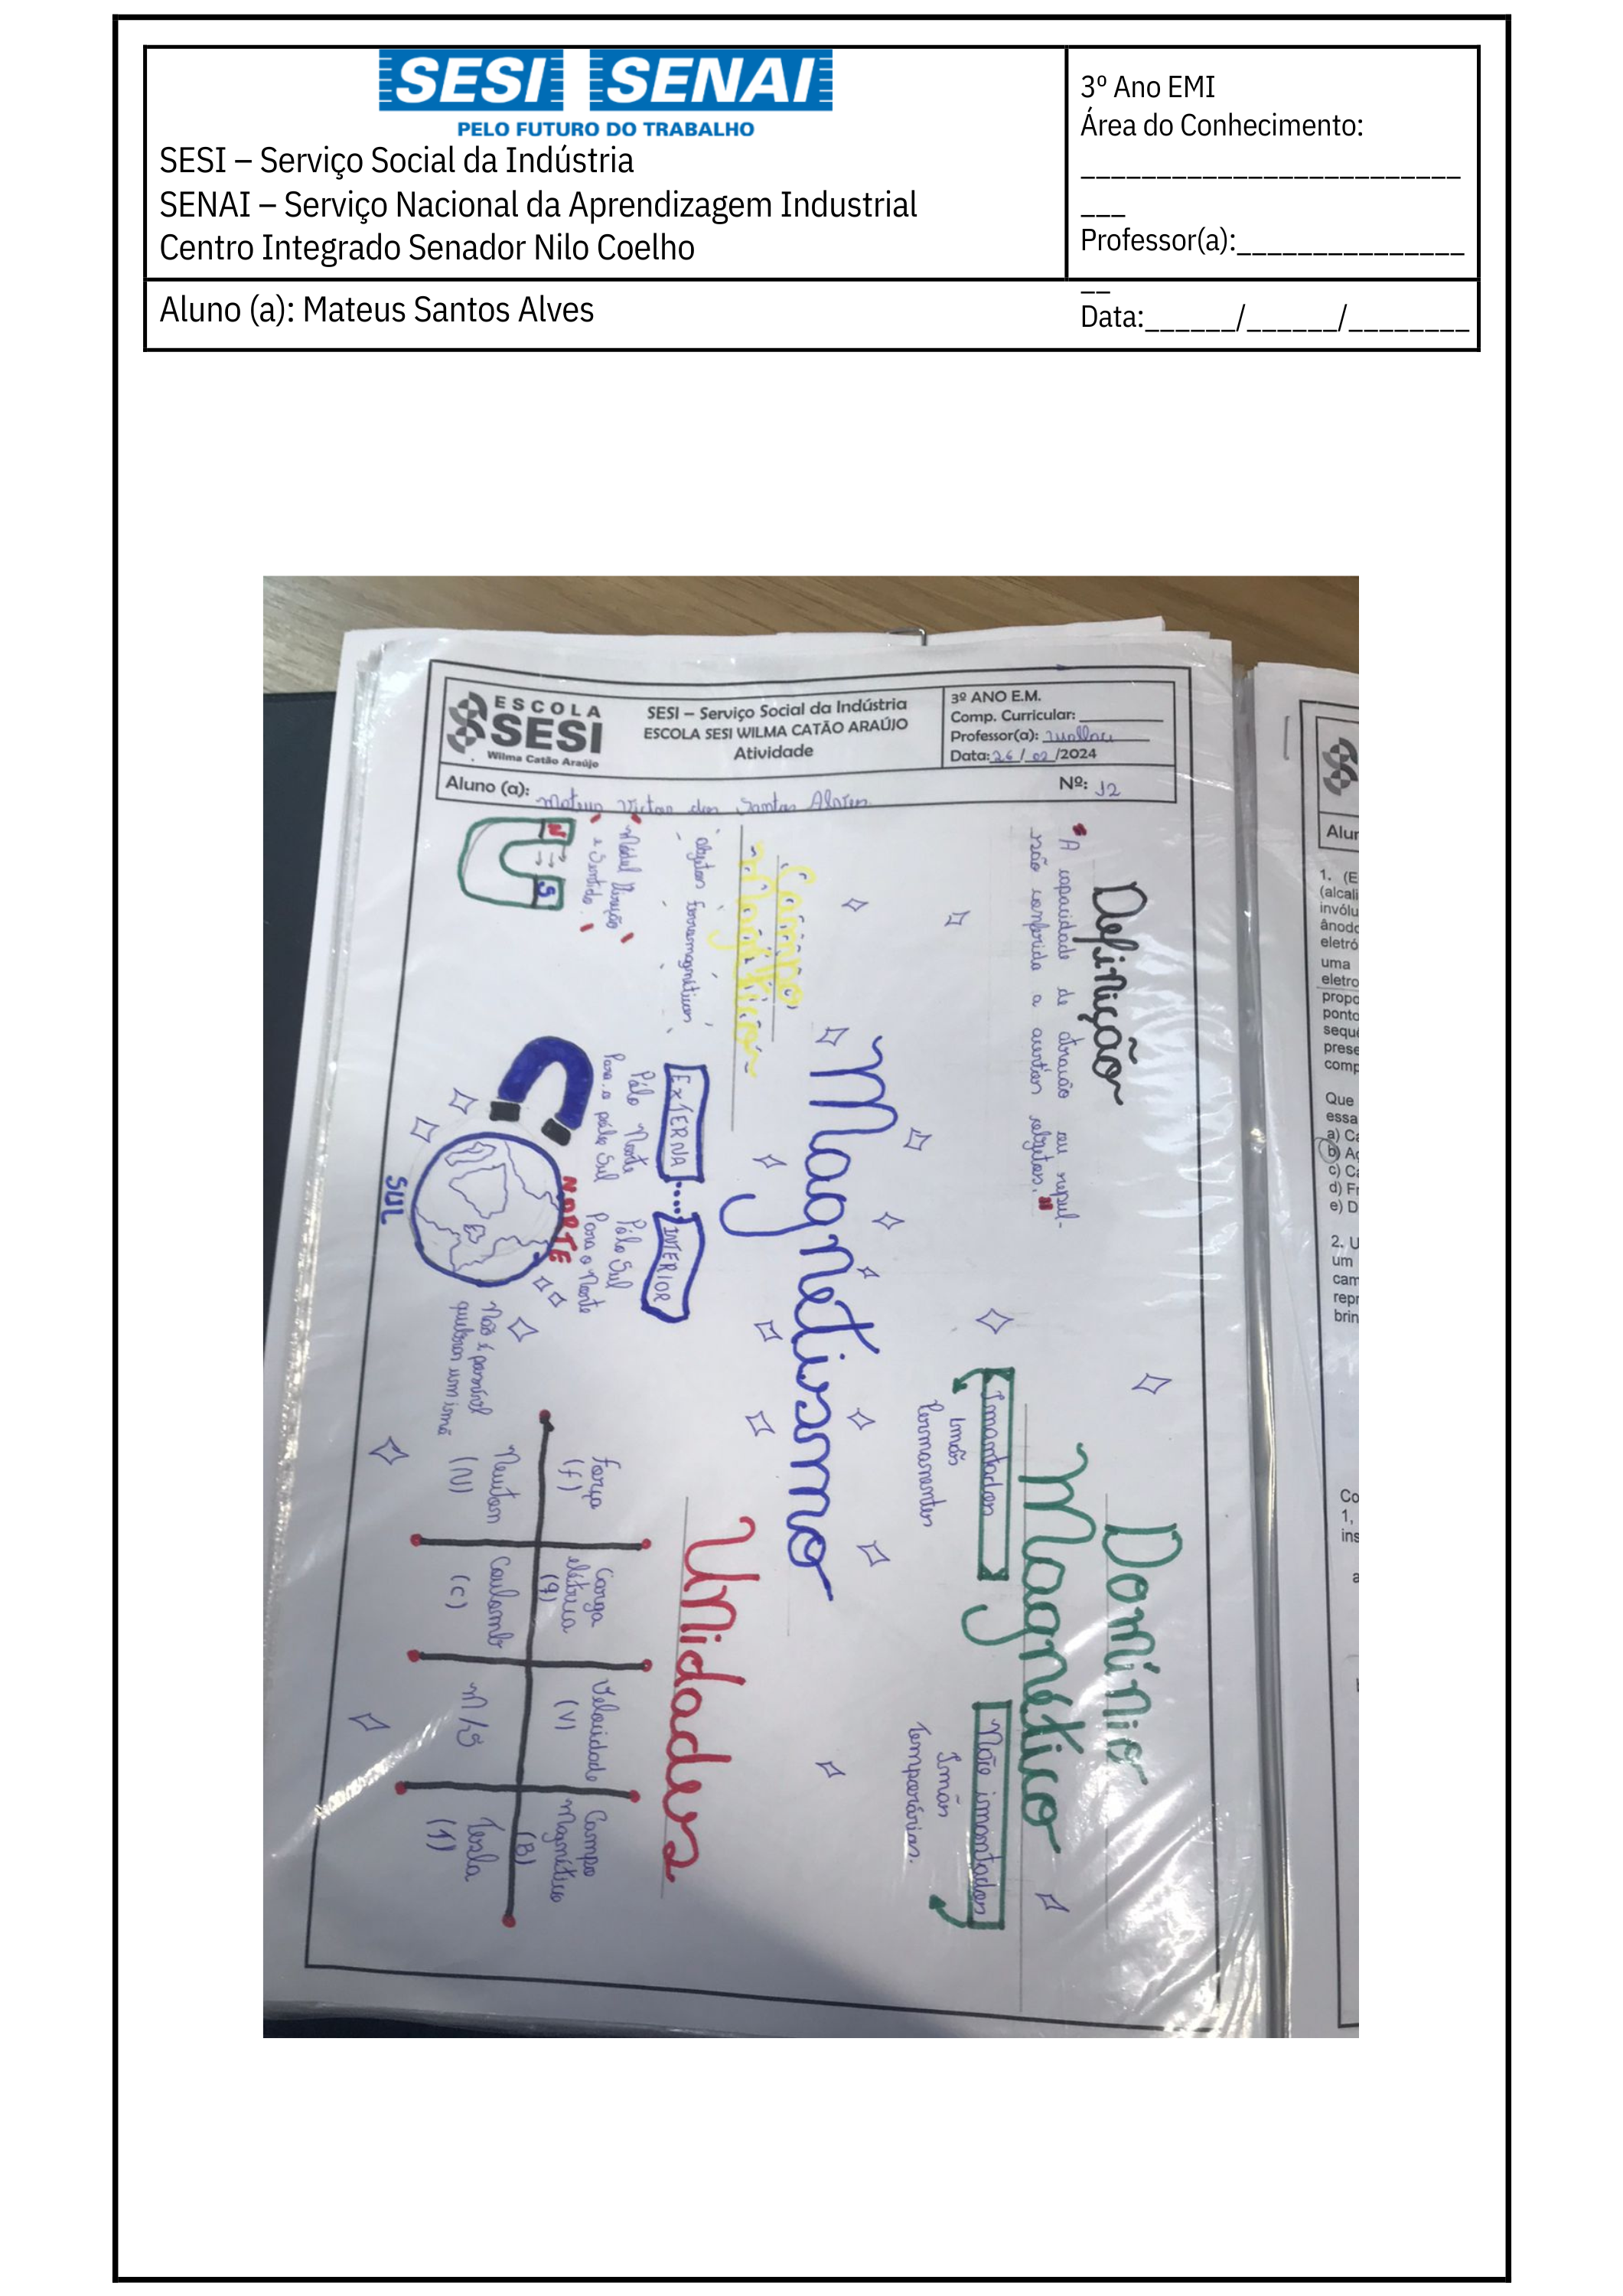 SESI SENAI
PELO FUTURO DO TRABALHO
SESI – Serviço Social da Indústria
SENAI – Serviço Nacional da Aprendizagem Industrial
Centro Integrado Senador Nilo Coelho
3º Ano EMI
Área do Conhecimento:
_________________________
___
Professor(a):_______________
__
Data:______/______/________
Aluno (a): Mateus Santos Alves
ESCOLA
SESI
Wilma Catão Araújo
SESI – Serviço Social da Indústria
ESCOLA SESI WILMA CATÃO ARAÚJO
Atividade
3º ANO E.M.
Comp. Curricular:
Professor(a):
Data: 26/02/2024
Aluno (a): Mateus Victor dos Santos Alves
Nº: 12
Definição
"A capacidade de atração ou repul-
são conferida a certos objetos."
Domínio
Magnético
Imantados
Imãs
Permanentes
Não imantados
Imãs
temporários.
Magnetismo
Campo
Magnético
objetos ferromagnéticos
Módul Direção
e Sentido
N
S
EXTERNA
Pólo Norte
Para o pólo Sul
INTERIOR
Pólo Sul
Para o Norte
NORTE
SUL
Não é possível
quebrar um imã
Unidades
Força
(f)
Carga
elétrica
(q)
Velocidade
(V)
Campo
Magnético
(B)
Newton
(N)
Coulomb
(C)
m/s
Tesla
(T)
Alu
1. (E
(alcali
invólu
ânodo
eletró
uma
eletro
propo
ponto
sequê
prese
comp
Que
essa
a) Ca
b) Ac
c) Ca
d) Fr
e) D
2. U
um
cam
repr
brin
Co
1,
ins
a